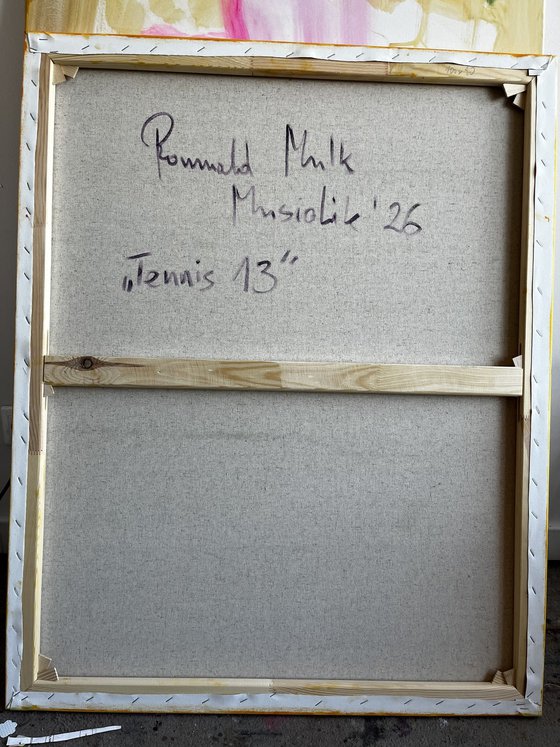 Romuald Mulk
Musiolik '26
„Tennis 13“